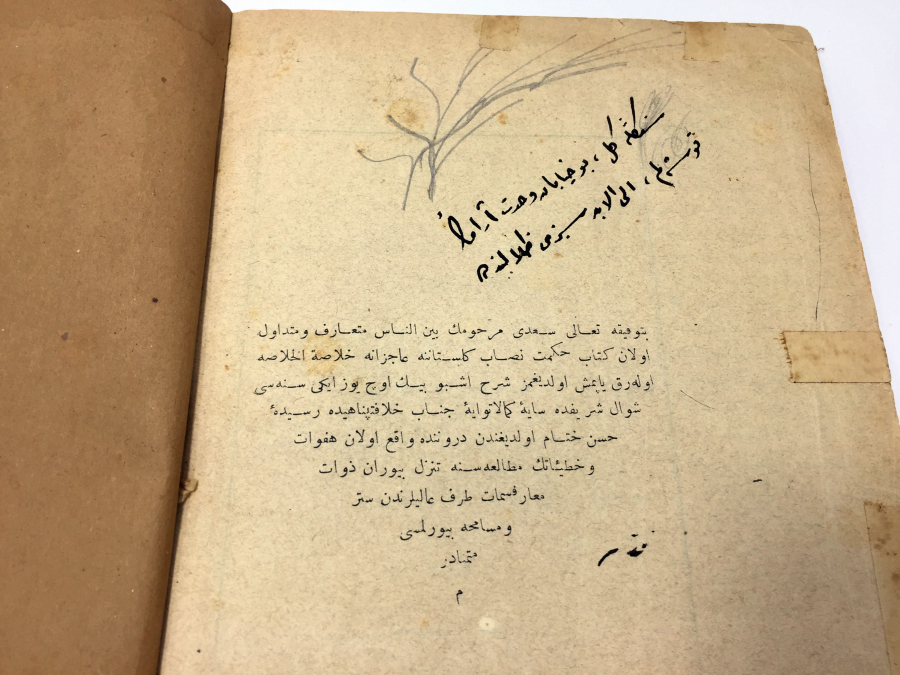 كل ، بو خيابان وحدت آرامه
الى الابد سزى
بتوفيقه تعالى سعدى مرحومك بين الناس متعارف ومتداول
اولان كتاب حكمت نصاب كلستاننه عاجزانه خلاصة الخلاصه
اوله‌رق ياپمش اولديغمز شرح اشبو بيك اوچ يوز ايكى سنه‌سى
شوال شريفده سايۀ كمالاتوايۀ جناب خلافتپناهيده رسيدۀ
حسن ختام اولديغندن دروننده واقع اولان هفوات
وخطيئاتك مطالعه‌سنه تنزل بيوران ذوات
معارفسمات طرف عاليلرندن ستر
ومسامحه بيورلمسى
متمنادر
م